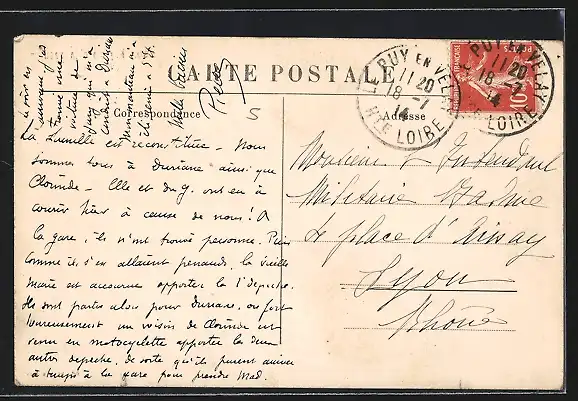 CARTE POSTALE
Correspondance
Adresse
LE PUY EN VELAY
11 20
18 -7
14
HTE LOIRE
LE PUY EN VELAY
11 20
18 -7
14
LOIRE
POSTES
10
La famille est reconstituée – Nous
sommes tous à Duniane ainsi que
Clorinde – Elle et du g. ont eu à
courir hier à cause de nous ! à
la gare, ils n'ont trouvé personne. Puis
comme ils s'en allaient penauds, la vieille
Marie est accourue apporter la 1e depeche.
Ils sont partis alors pour Duniane, ou fort
heureusement un voisin de Clorinde est
venu en motocyclette apporter la deux
autre depeche, de sorte qu'ils purent arriver
à temps à la gare pour prendre Mad.
Mille baisers
Monsieur l'Intendant
Militaire
place d'Ainay
Lyon
Rhône